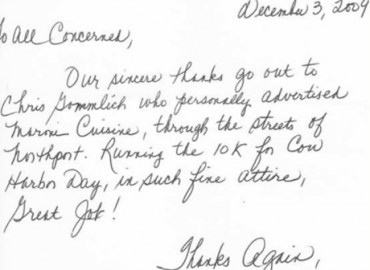 December 3, 2009
To All Concerned,
Our sincere thanks go out to
Chris Gommlich who personally advertised
Maroni Cuisine, through the streets of
Northport. Running the 10K for Cow
Harbor Day, in such fine attire,
Great Job!
Thanks Again,